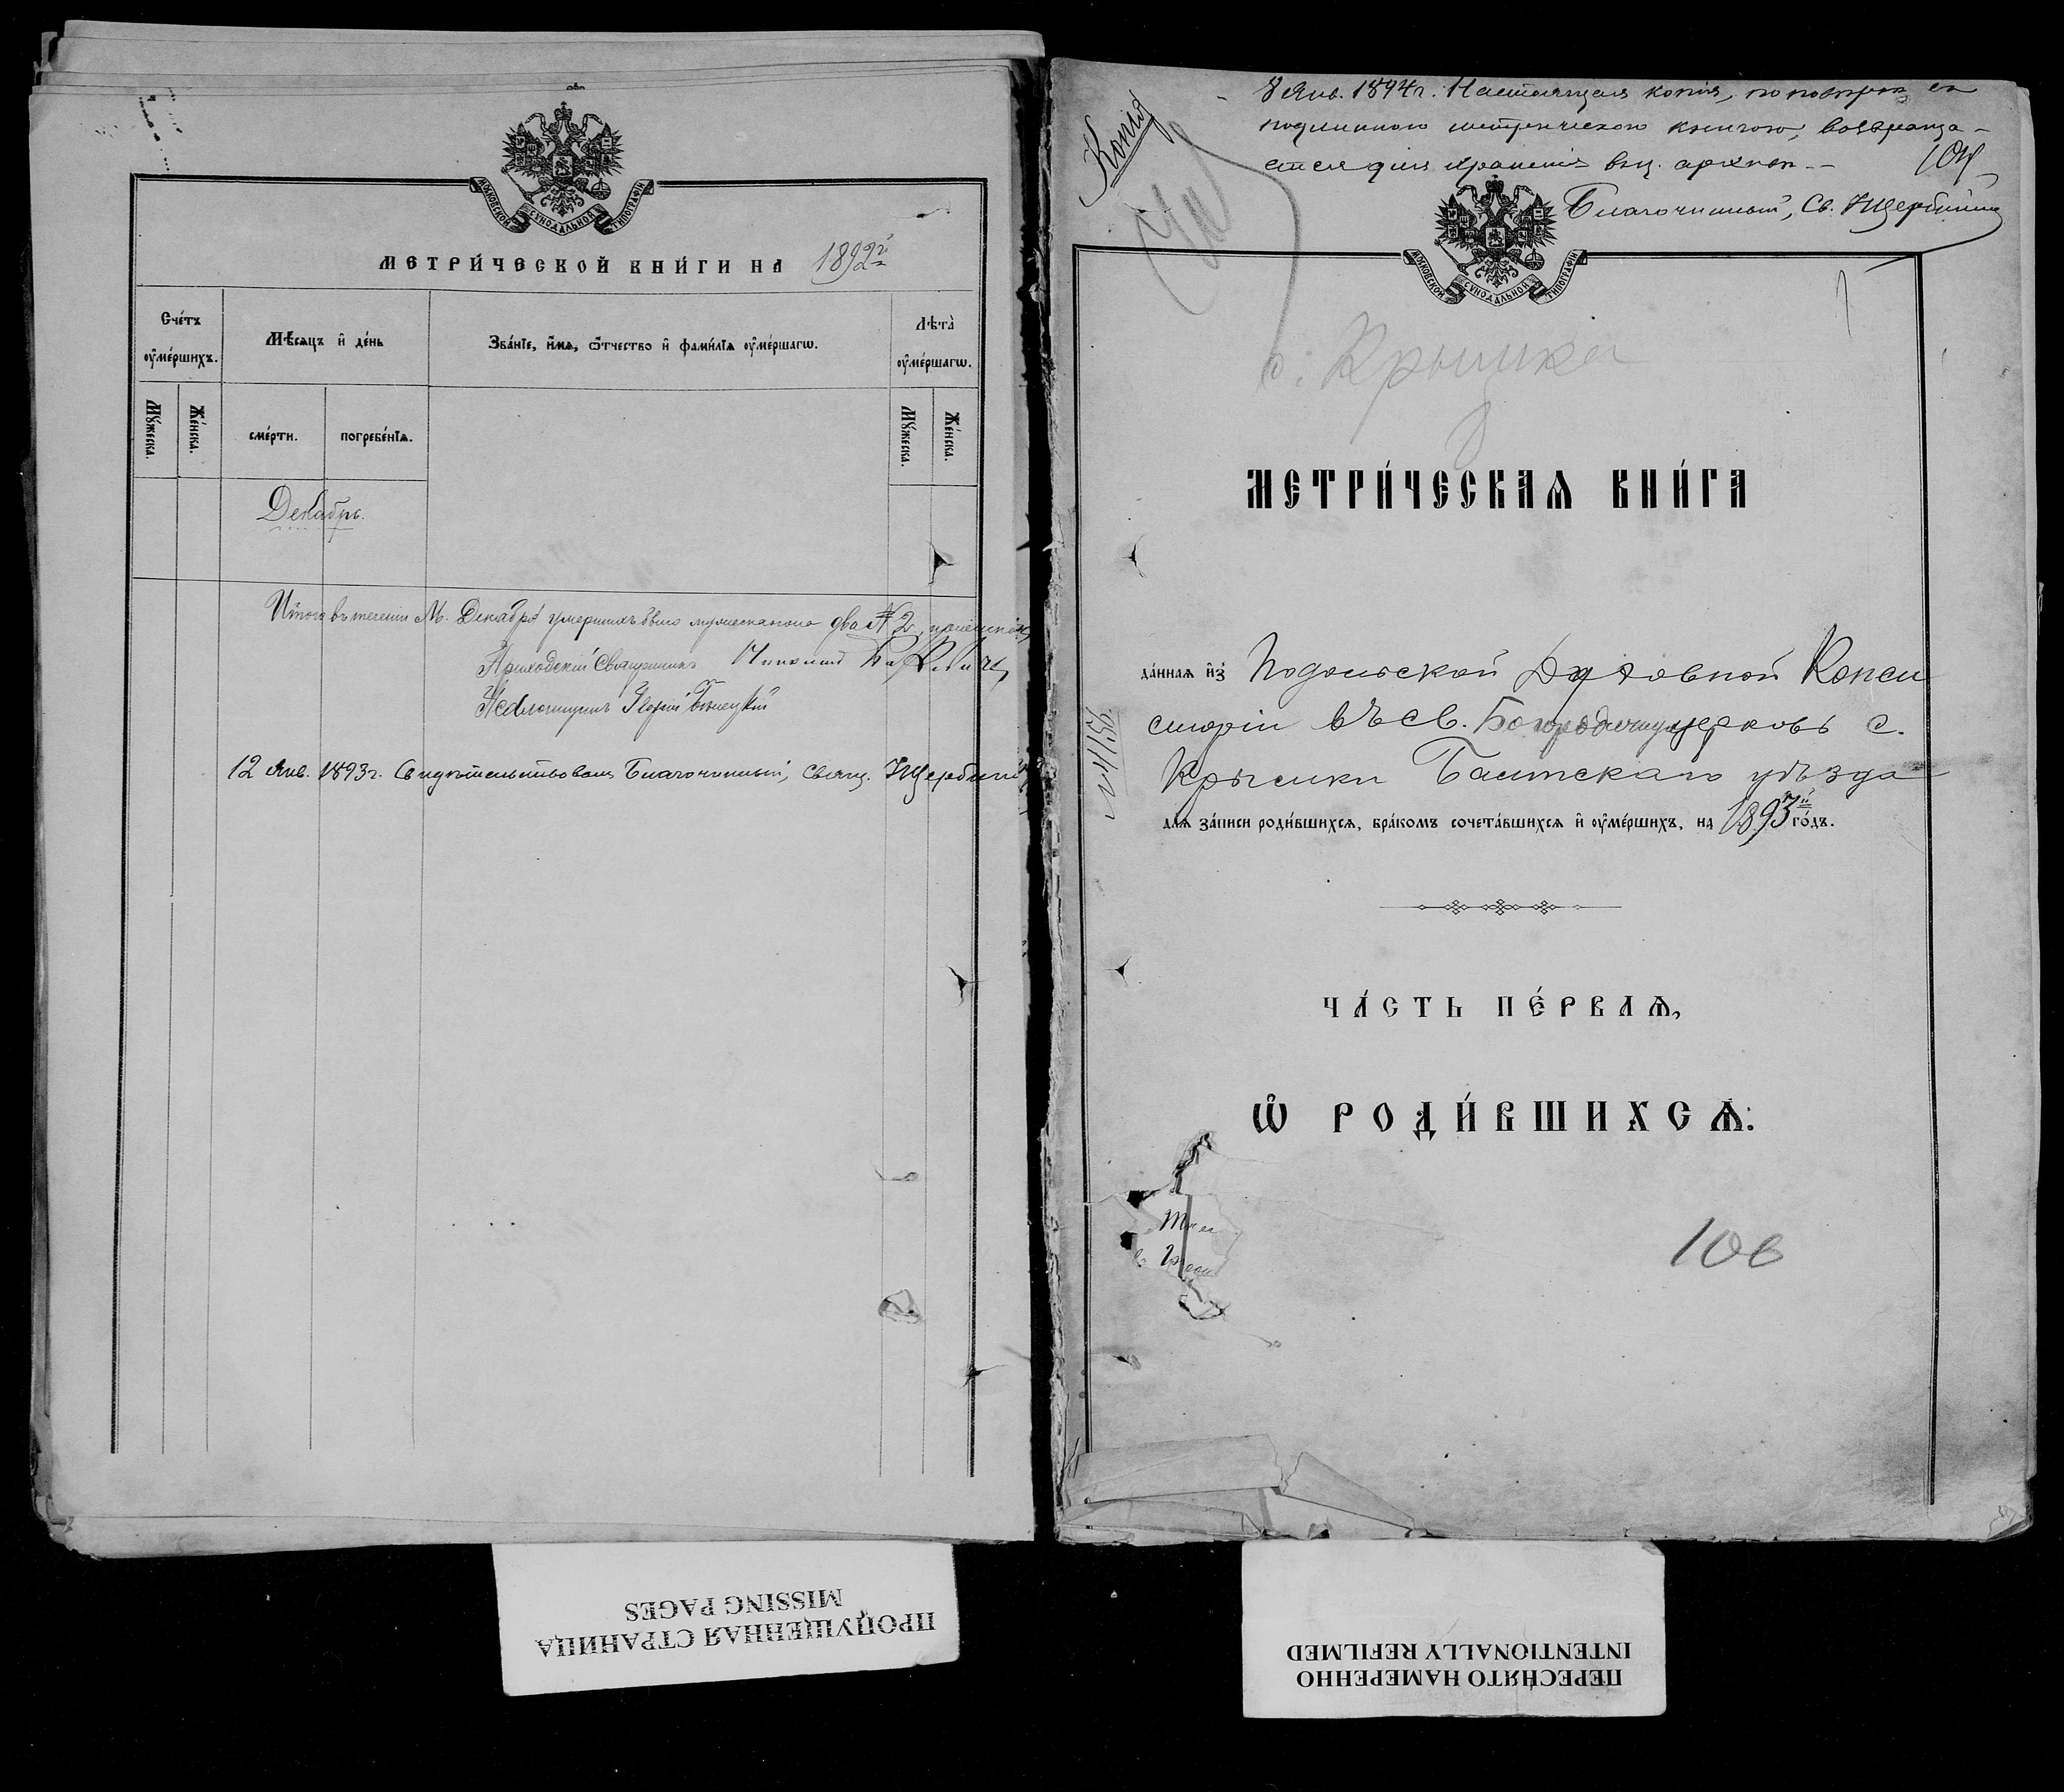 МОСКОВСКОЙ СѴНОДАЛЬНОЙ ТИПОГРАФІИ
МЕТРИ́ЧЕСКОЙ КНИ́ГИ НА 1892й
Сче́тъ оу҆ме́ршихъ.
Мѣ́сяцъ и҆ де́нь
Зва́нїе, и҆́мѧ, ѻ҆́тчество и҆ фами́лїѧ оу҆ме́ршагѡ.
Лѣта̀ оу҆ме́ршагѡ.
Мꙋ́жеска.
Же́нска.
сме́рти.
погребе́нїѧ.
Мꙋ́жеска.
Же́нска.
Декабрь.
Итого въ теченіи М. Декабря умершихъ было мужескаго два № 2,
Приходскій Священникъ
Псаломщикъ
12 Янв. 1893 г. Свидѣтельствовалъ Благочинный, Свящ. Щербин
Копія
8 Янв. 1894 г. Настоящая копія, по повѣрке съ
подлинною метрическою книгою, возвраща-
ется для храненія въ ц. архивъ.—
Благочинный, Св. Щербин
МОСКОВСКОЙ СѴНОДАЛЬНОЙ ТИПОГРАФІИ
1
с. Крышка
МЕТРИ́ЧЕСКАѦ КНИ́ГА
да́ннаѧ и҆з̾ Подольской Духовной Конси
сторіи въ св. Богородичну церковь с.
Балтскаго уѣзда
длѧ за́писи роди́вшихсѧ, бра́комъ сочета́вшихсѧ и҆ оу҆ме́ршихъ, на 1893й го́дъ.
ЧА́СТЬ ПЕ́РВАѦ,
Ѽ РОДИ́ВШИХСѦ:
106
ПРОПУЩЕННАЯ СТРАНИЦА
MISSING PAGES
ПЕРЕСНЯТО НАМЕРЕННО
INTENTIONALLY REFILMED